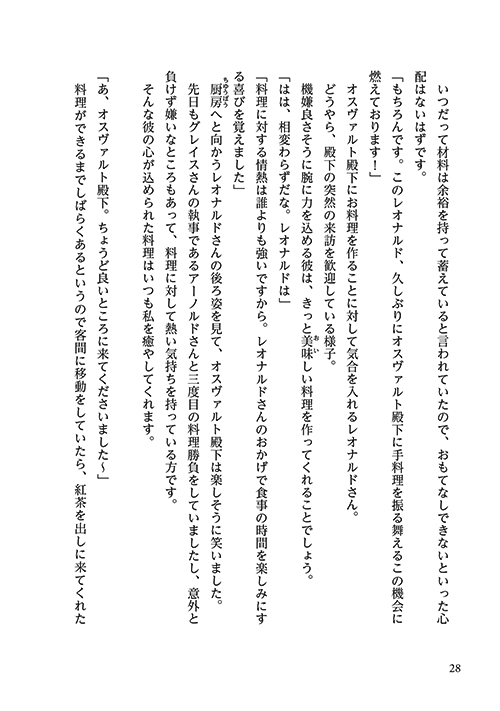 いつだって材料は余裕を持って蓄えていると言われていたので、おもてなしできないといった心
配はないはずです。
「もちろんです。このレオナルド、久しぶりにオスヴァルト殿下に手料理を振る舞えるこの機会に
燃えております！」
オスヴァルト殿下にお料理を作ることに対して気合を入れるレオナルドさん。
どうやら、殿下の突然の来訪を歓迎している様子。
機嫌良さそうに腕に力を込める彼は、きっと美味しい料理を作ってくれることでしょう。
「はは、相変わらずだな。レオナルドは」
「料理に対する情熱は誰よりも強いですから。レオナルドさんのおかげで食事の時間を楽しみにす
る喜びを覚えました」
厨房へと向かうレオナルドさんの後ろ姿を見て、オスヴァルト殿下は楽しそうに笑いました。
先日もグレイスさんの執事であるアーノルドさんと三度目の料理勝負をしていましたし、意外と
負けず嫌いなところもあって、料理に対して熱い気持ちを持っている方です。
そんな彼の心が込められた料理はいつも私を癒やしてくれます。
「あ、オスヴァルト殿下。ちょうど良いところに来てくださいました～」
料理ができるまでしばらくあるというので客間に移動をしていたら、紅茶を出しに来てくれた
28